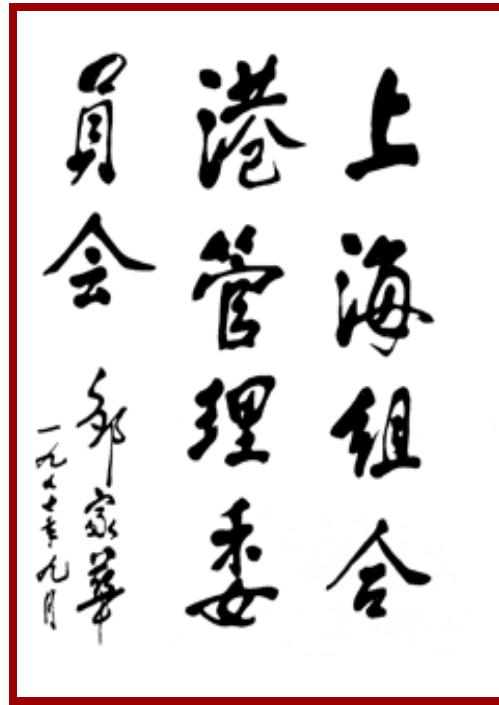 上海组合
港管理委
員会
邹家華
一九九七年九月